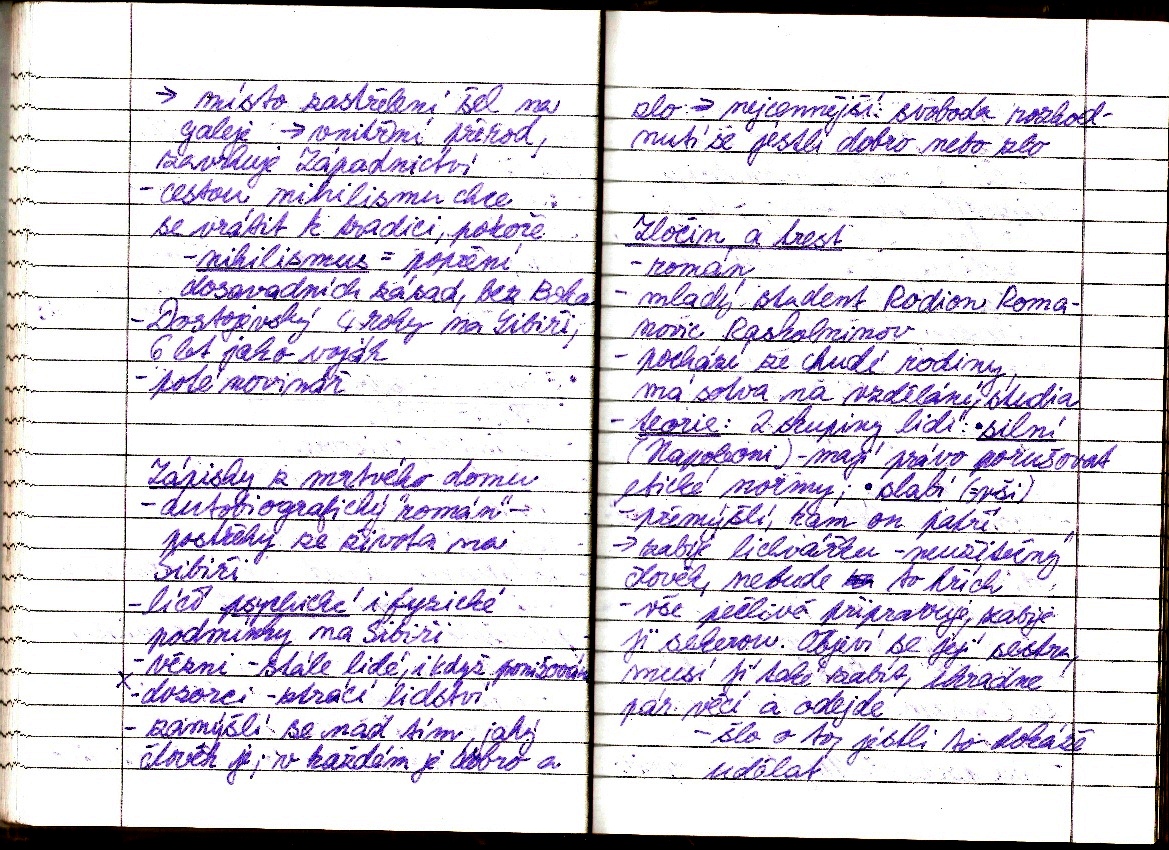 → místo zastřelení šel na
galeje → vnitřní přerod,
zavrhuje Západnictví
- cestou nihilismu chce
se vrátit k tradici, pokoře
- nihilismus = popření
dosavadních zásad, bez Boha
- Dostojevský 4 roky na Sibiři,
6 let jako voják
- poté novinář
Zápisky z mrtvého domu
- autobiografický "román" -
postřehy ze života na
Sibiři
- líčí psychické i fyzické
podmínky na Sibiři
- vězni - stále lidé, i když ponižováni
x - dozorci - ztrácí lidství
- zamýšlí se nad tím, jaký
člověk je; v každém je dobro a
zlo → nejcennější: svoboda rozhod-
nutí se jestli dobro nebo zlo
Zločin a trest
- román
- mladý student Rodion Roma-
novič Raskolnikov
- pochází ze chudé rodiny,
má sotva na vzdělání, studia
- teorie: 2 skupiny lidí: • silní
(Napoleoni) - mají právo porušovat
etické normy; • slabí (=vši)
- přemýšlí, kam on patří
→ zabije lichvářku - neužitečný
člověk, nebude to hřích
- vše pečlivě připravuje, zabije
ji sekerou. Objeví se její sestra,
musí ji také zabít, ukradne
pár věcí a odejde
- šlo o to, jestli to dokáže
udělat